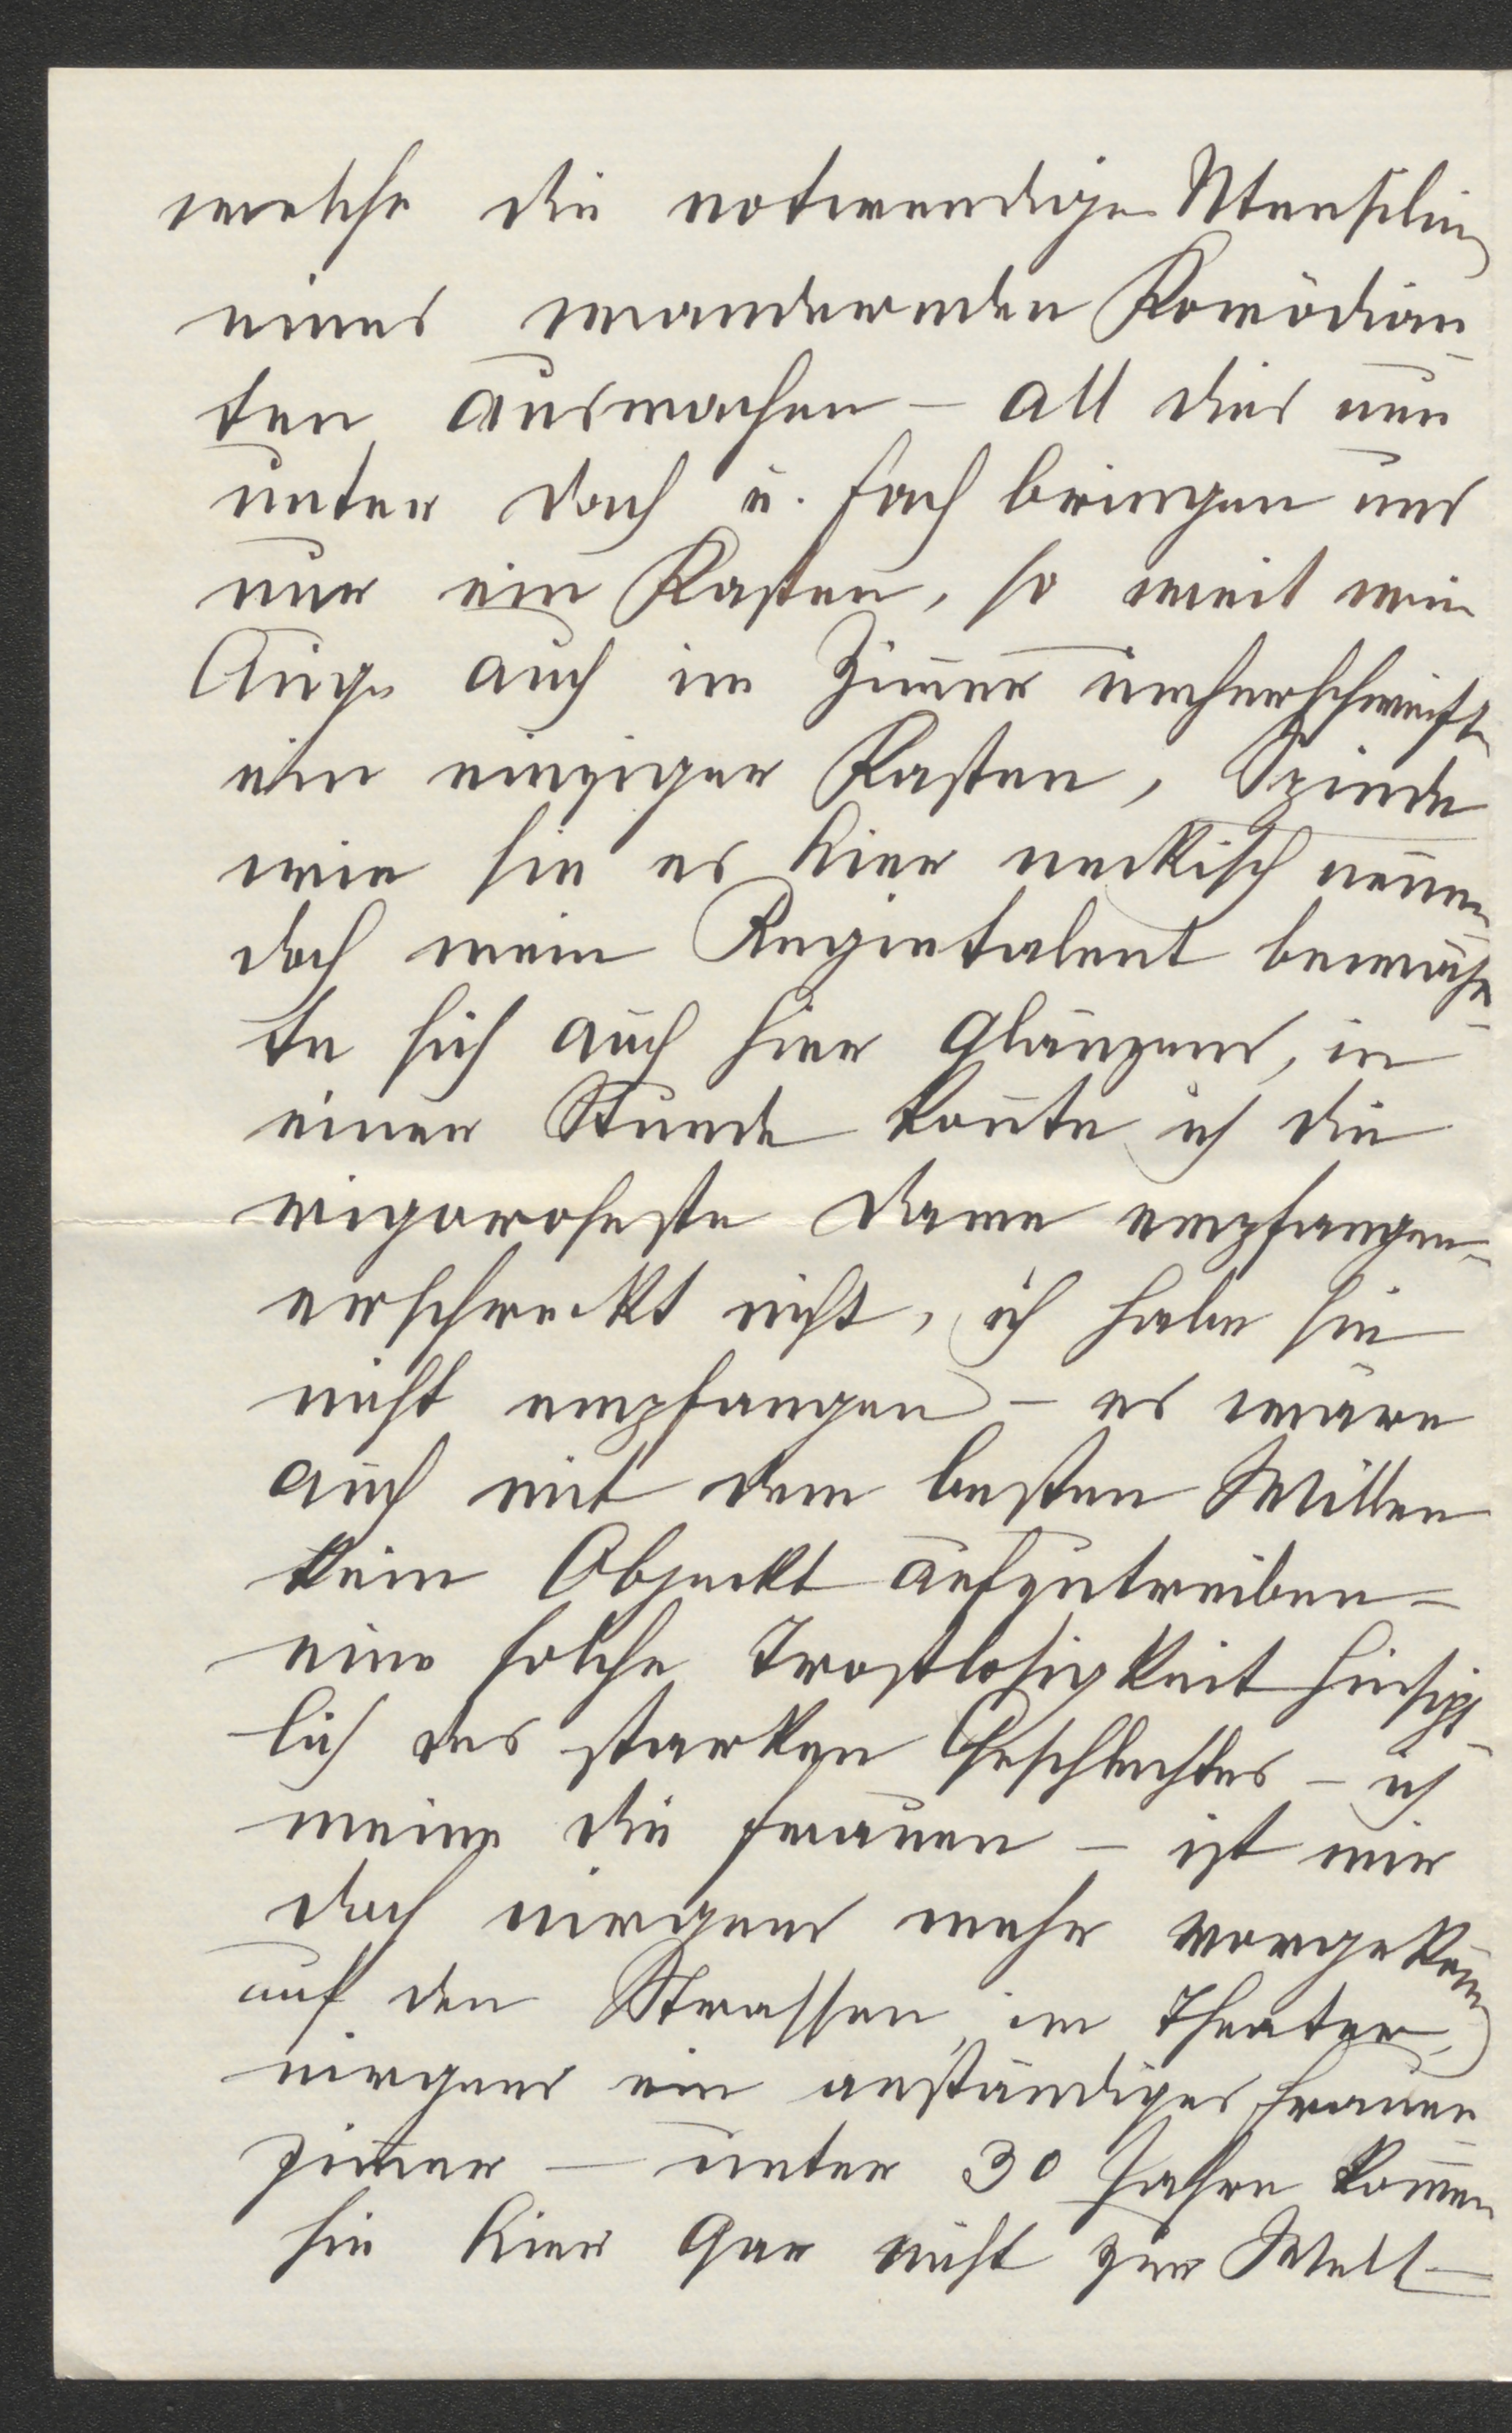 welche die notwendigen Utensilien
eines wandernden Komödian
ten ausmachen – all dies nun
unter Dach u. Fach bringen und
nur ein Kasten, so weit mein
Auge auch im Zim̄er umherschweift
ein einziger Kasten, Spinde
wie sie es hier neckisch nen̄en
doch mein Regietalent bewähr
te sich auch hier glänzend, in
einer Stunde kon̄te ich die
rigoroseste Dame empfangen –
erschreckt nicht, ich habe sie
nicht empfangen – es wäre
auch mit dem besten Willen
kein Objeckt aufzutreiben –
eine solche Trostlosigkeit hinsicht
lich des starken Geschlechtes – ich
meine die Frauen – ist mir
doch nirgend mehr vorgekom̄en
auf den Strassen, im Theater,
nirgend ein anständiges Frauen
zim̄er – unter 30 Jahre kom̄en
sie hier gar nicht zur Welt –